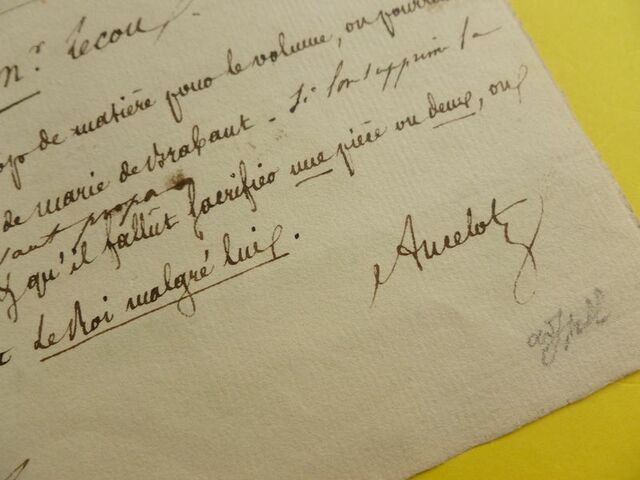 mr. Lecou.
de matière pour le volume, on pourrai
de marie de Brabant - Si l'on supprime la
avant propos
qu'il fallût sacrifier une pièce ou deux, on
Le Roi malgré lui.
Ancelot